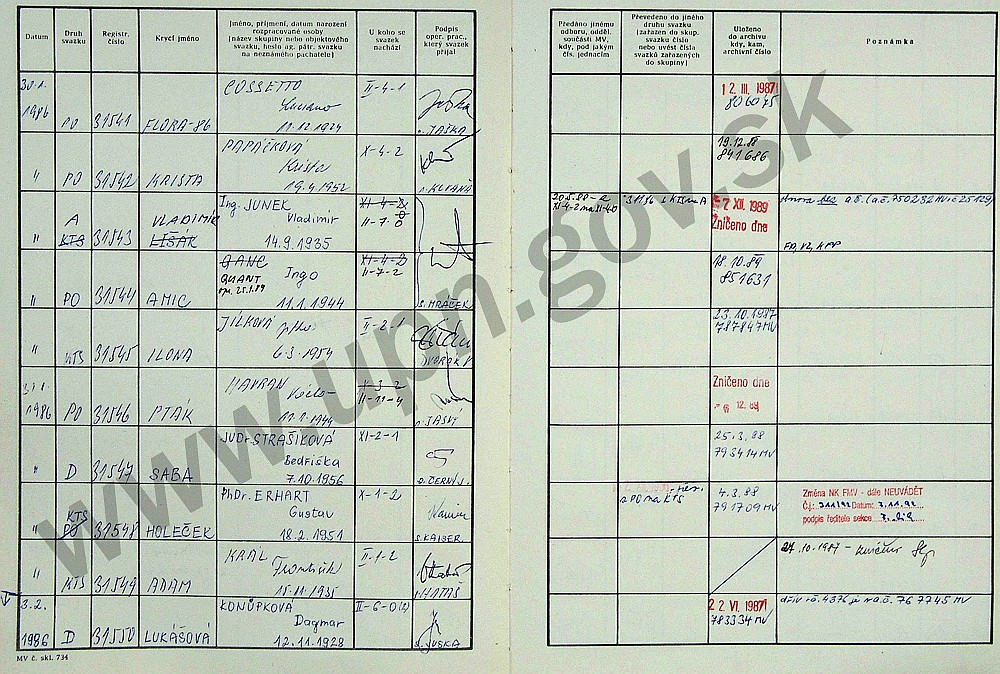 Datum
Druh svazku
Registr. číslo
Krycí jméno
Jméno, příjmení, datum narození
rozpracované osoby
(název skupiny nebo objektového
svazku, heslo ag. pátr. svazku
na neznámého pachatele)
U koho se
svazek
nachází
Podpis
oper. prac.,
který svazek
přijal
Předáno jinému
odboru, odděl.
součásti MV,
kdy, pod jakým
čís. jednacím
Převedeno do jiného
druhu svazku
(zařazen do skup.
svazku číslo
nebo uvést čísla
svazků zařazených
do skupiny)
Uloženo
do archivu
kdy, kam,
archivní číslo
Poznámka
30.1.
1986 PO 31541 FLORA-86
COSSETTO
Luciano
11.12.1924
II-4-1
s. JAŠKA
12. III. 1987
806045
" PO 31542 KRISTA
PAPÁČKOVÁ
19.4.1952
X-4-2
19.12.88
841686
A VLADIMÍR
" KTS 31543 LIŠÁK
Ing. JUNEK
Vladimír
14.9.1935
XI-4-2
II-7-0
-7. XII. 1989
Zničeno dne
" PO 31544 AMIC
GANC
QUANT Ingo
11.1.1944
XI-4-2
II-7-2
s. MRÁČEK
18.10.89
851631
" KTS 31545 ILONA
JILKOVÁ
6.3.1954
II-2-1
DVOŘÁK
23.10.1987
787847 MV
31.1.
1986 PO 31546 PTÁK
HAVRAN
X-3-2
II-11-4
Zničeno dne
12. 89
" D 31547 SABA
JUDr STRAŠÍKOVÁ
Bedřiška
7.10.1956
XI-2-1
s. ČERNÝ
25.3.88
793414 MV
KTS
" PO 31548 HOLEČEK
PhDr. ERHART
Gustav
18.2.1951
X-1-2
s. KAISER
z PO na KTS
4.3.88
791709 MV
Změna NK FMV - dále NEUVÁDĚT
Č.j.: 311/92 Datum: 3.11.92
podpis ředitele sekce
" KTS 31549 ADAM
KRÁL
František
15.11.1935
II-1-2
27.10.1987
3.2.
1986 D 31550 LUKÁŠOVÁ
KONŮPKOVÁ
Dagmar
12.11.1928
II-6-0(2)
s. JUSKA
22. VI. 1987
783334 MV
dřív r.č. 4376 je na č. 767745 MV
MV č. skl. 734
www.upn.gov.sk